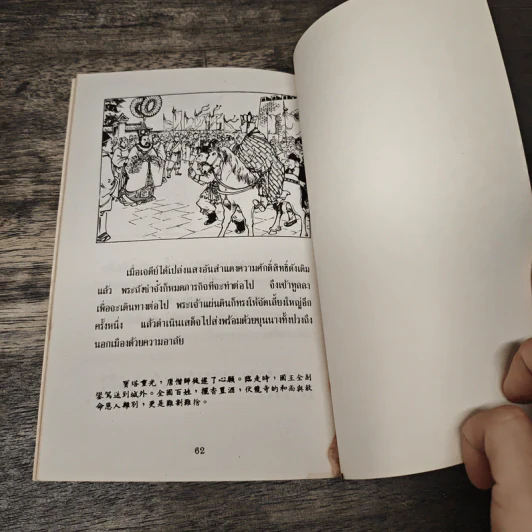 เมื่อเจดีย์ได้เปล่งแสงอันสำแดงความศักดิ์สิทธิ์ดังเดิม
แล้ว พระถังซำจั๋งก็หมดภารกิจที่จะทำต่อไป จึงเข้าทูลลา
เพื่อจะเดินทางต่อไป พระเจ้าแผ่นดินก็ทรงให้จัดเลี้ยงใหญ่อีก
ครั้งหนึ่ง แล้วดำเนินเสด็จไปส่งพร้อมด้วยขุนนางทั้งปวงถึง
นอกเมืองด้วยความอาลัย
寶塔重光，唐僧師徒遂了心願。臨走時，國王全副
鑾駕送到城外。全國百姓，擺香置酒，伏龍寺的和尚與救
命恩人離別，更是難割難捨。
62